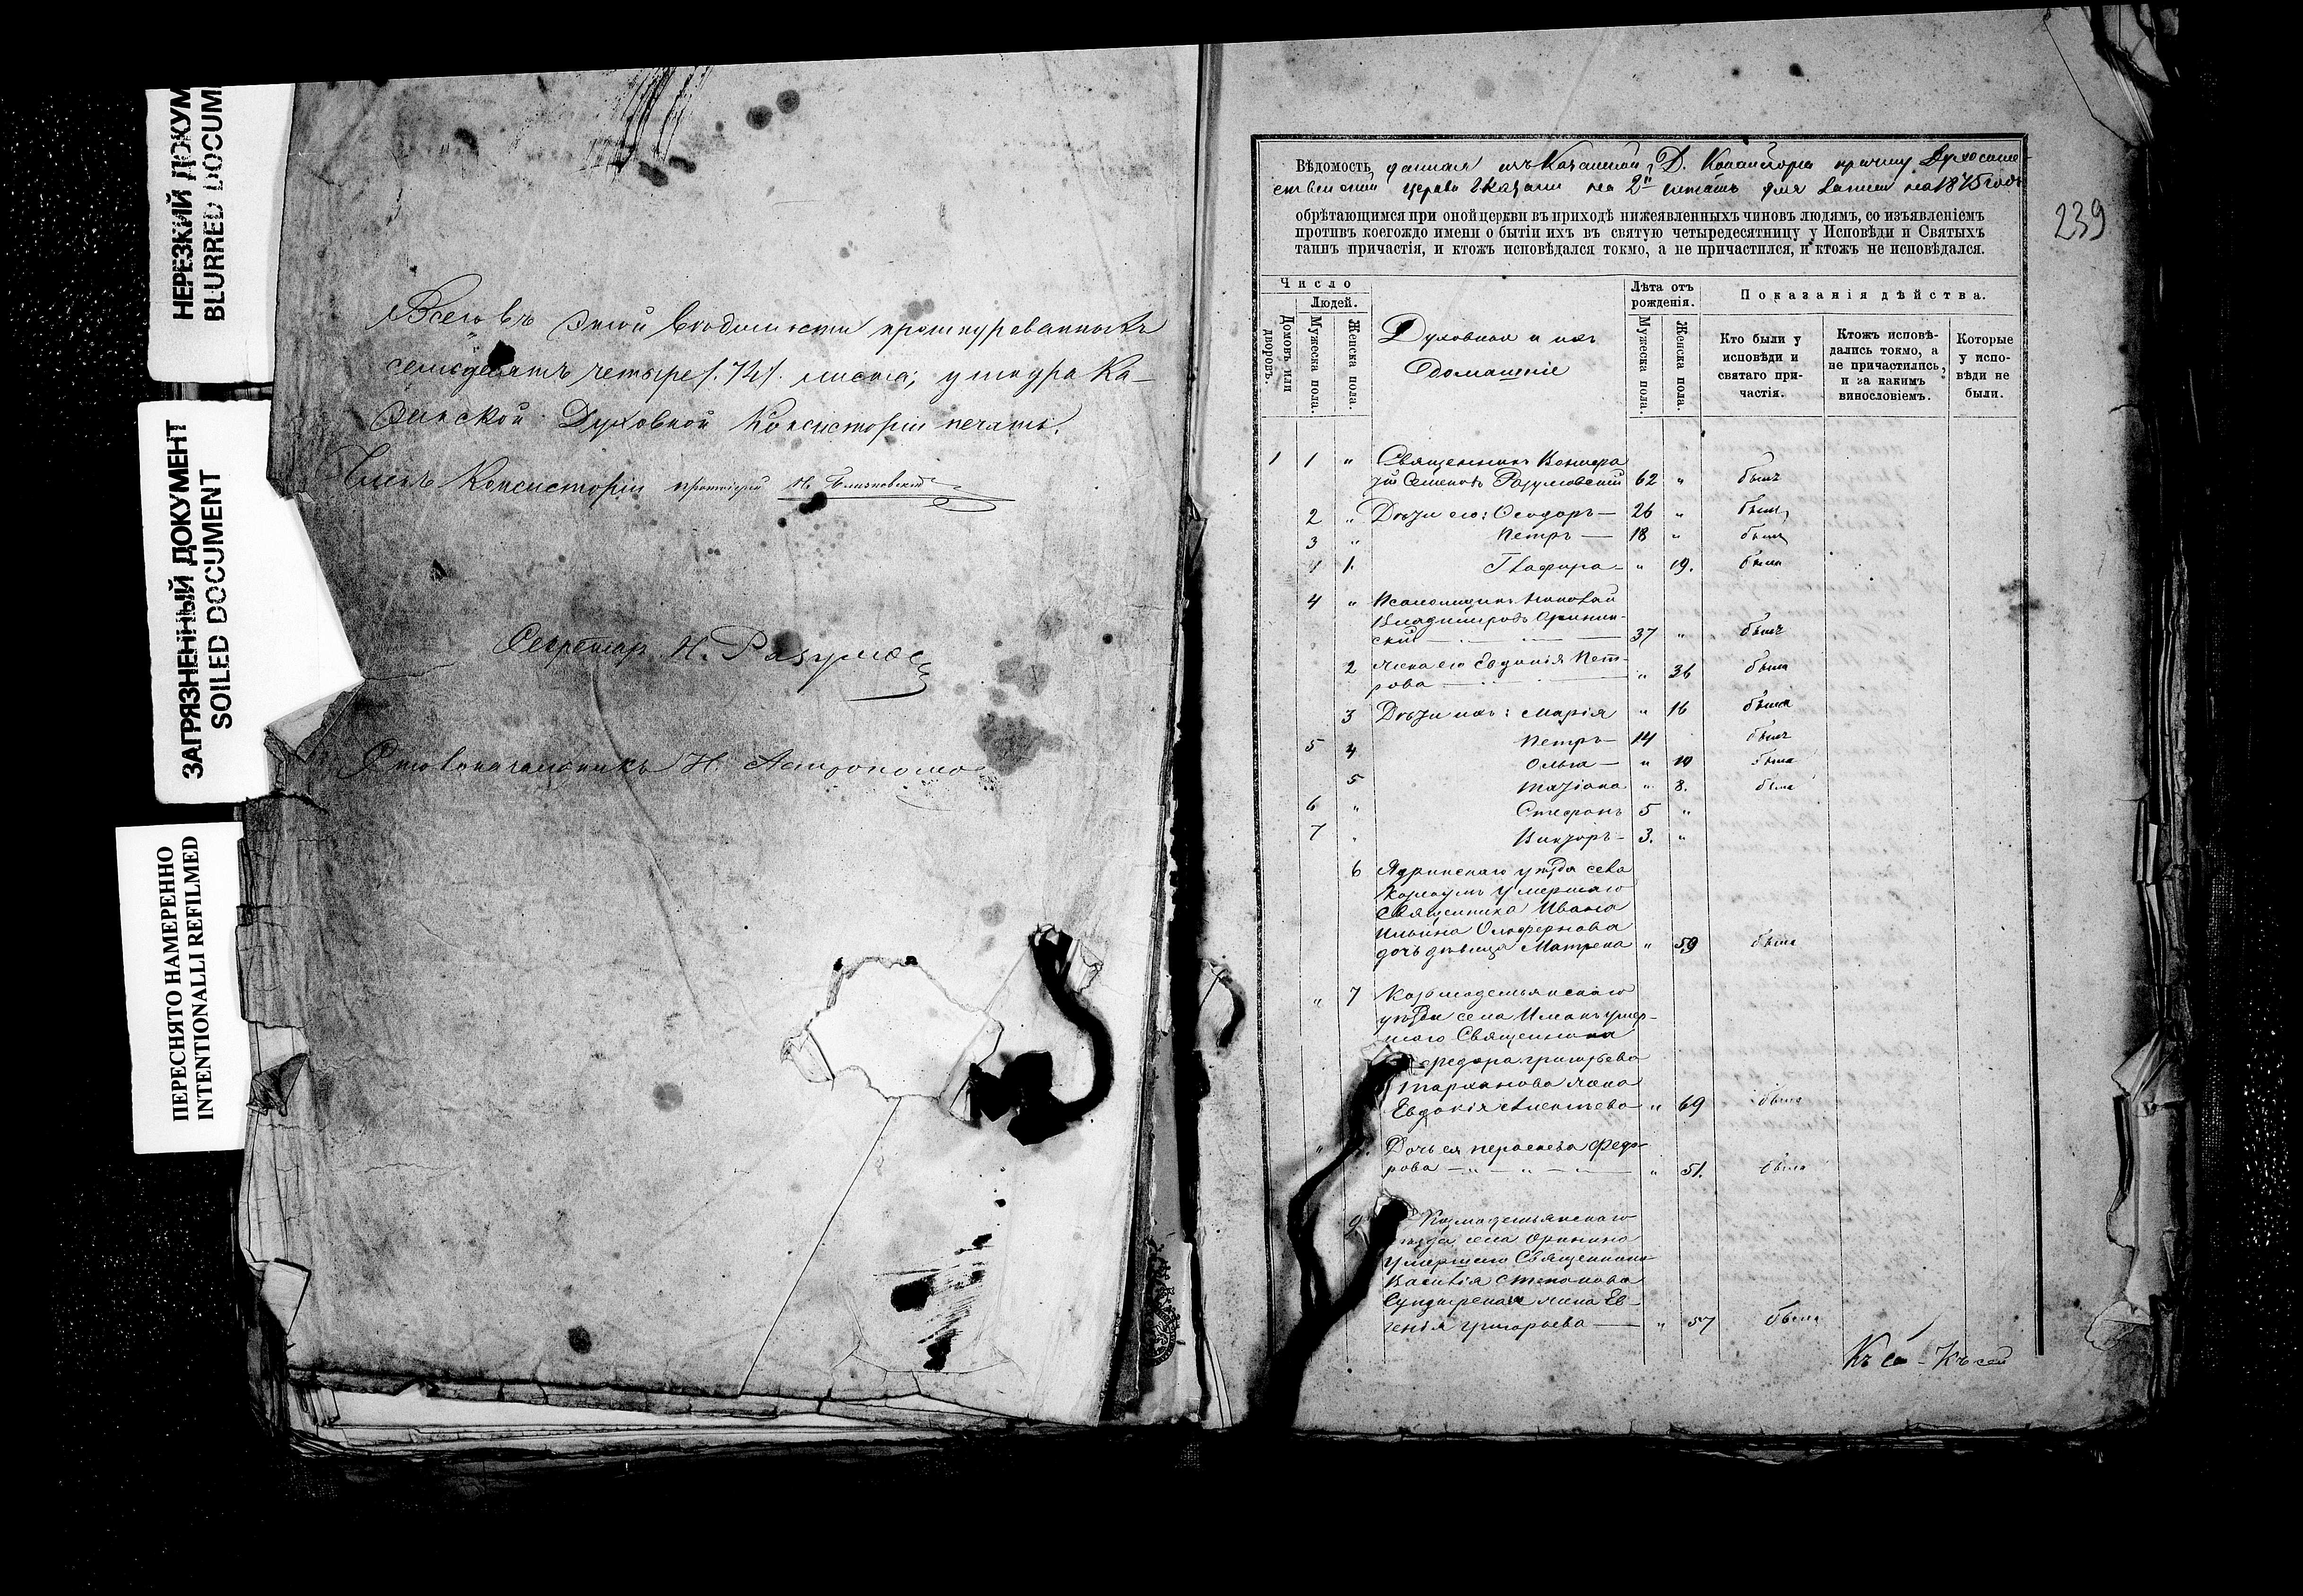 НЕРЕЗКИЙ ДОКУМ
BLURRED DOCUM
ЗАГРЯЗНЕННЫЙ ДОКУМЕНТ
SOILED DOCUMENT
ПЕРЕСНЯТО НАМЕРЕННО
INTENTIONALLI REFILMED
Всего въ этой вѣдомости прошнурованныхъ
семьдесятъ четыре /.74/. листа; у шнура Ка-
занской Духовной Консисторіи печать.
Членъ Консисторіи протоіерей
Секретарь Н. Разумов
Столоначальникъ Н. Астрономо
239
Вѣдомость, данная изъ Казанской Д. Консисторіи причту Духосоше-
ственской церкви г. Казани на 2й штатъ для записи на 1875 годъ
обрѣтающимся при оной церкви въ приходѣ нижеявленныхъ чиновъ людямъ, со изъявленіемъ
противъ коегождо имени о бытіи ихъ въ святую четыредесятницу у Исповѣди и Святыхъ
таинъ причастія, и ктожъ исповѣдался токмо, а не причастился, и ктожъ не исповѣдался.
Число
Людей.
Домовъ или дворовъ.
Мужеска пола.
Женска пола.
Духовные и ихъ
домашніе
Лѣта отъ рожденія.
Мужеска пола.
Женска пола.
Показанія дѣйства.
Кто были у исповѣди и святаго причастія.
Ктожъ исповѣдались токмо, а не причастились, и за какимъ винословіемъ.
Которые у исповѣди не были.
1 1 " Священникъ
Семеновъ Разумовскій 62 " былъ
2 " Дѣти его: Ѳеодоръ — 26 " былъ
3 " Петръ — 18 " былъ
1 1. Глафира — " 19. была
4 " Псаломщикъ Николай
Владиміровъ Оринин-
скій — 37 " былъ
2 Жена его Евдокія Пет-
рова — " 36 была
3 Дѣти ихъ: Марія " 16 была
5 4 Петръ — 14 былъ
Ольга — " 10 была
5 Татіана " 8. была
6 " Стефанъ 5 "
7 " Викторъ — 3. "
6 Ядринскаго уѣзда села
умершаго
Священника Ивана
Ильина Олофернова
дочь дѣвица Матрена " 59 была
" 7 Козмодемьянскаго
уѣзда села умер-
шаго Священника
Федора Григорьева
Тарханова жена
Евдокія " 69 была
" Дочь ея Федо-
рова — " — " — " 51. была
9 Козмодемьянскаго
уѣзда села Оринино
умершаго Священника
Василія Степанова
Сундырскаго жена Ев-
генія Григорьева — " 57 была
Къ сей - Къ сей